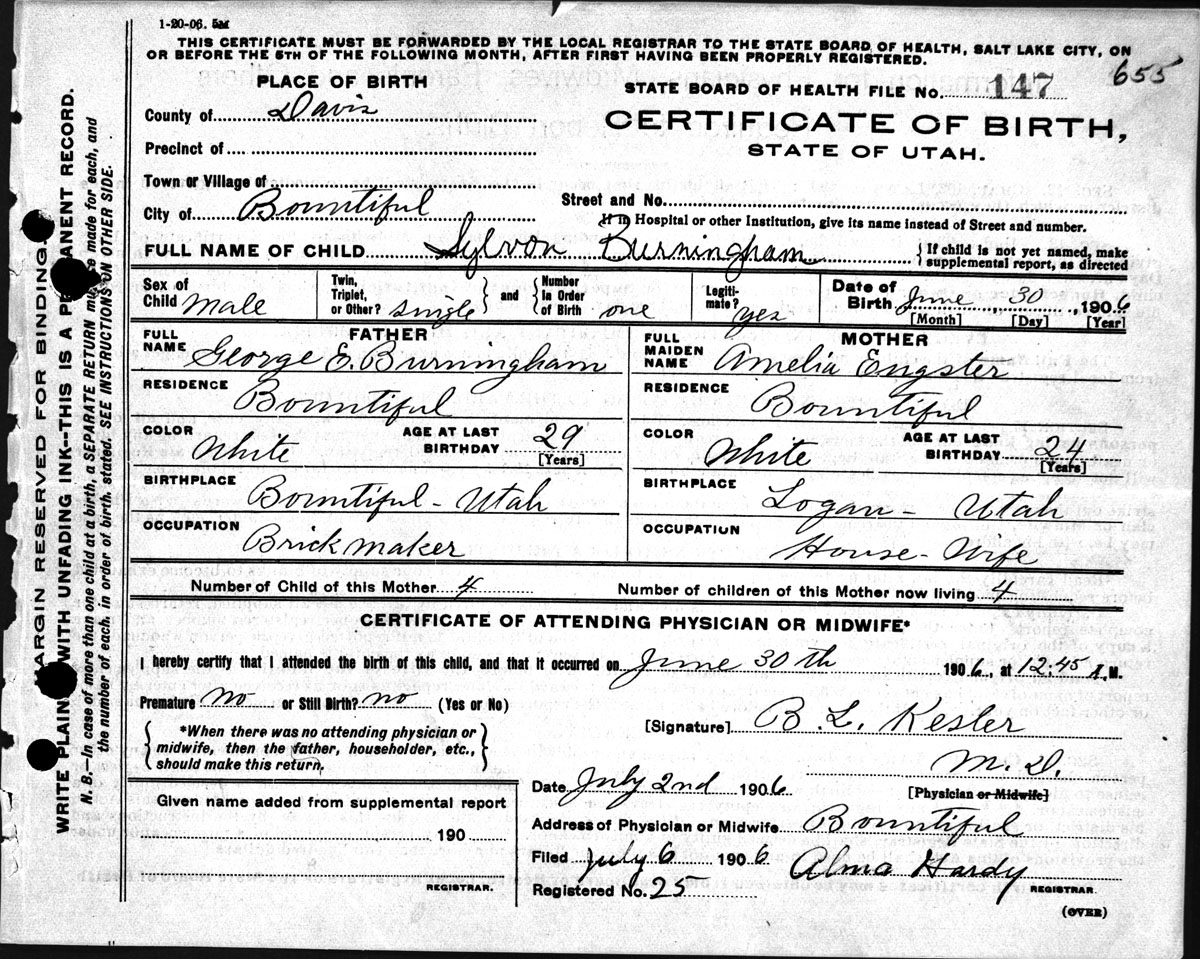 1-20-06.
THIS CERTIFICATE MUST BE FORWARDED BY THE LOCAL REGISTRAR TO THE STATE BOARD OF HEALTH, SALT LAKE CITY, ON
OR BEFORE THE 5TH OF THE FOLLOWING MONTH, AFTER FIRST HAVING BEEN PROPERLY REGISTERED.
655
PLACE OF BIRTH
STATE BOARD OF HEALTH FILE No. 147
County of Davis
CERTIFICATE OF BIRTH,
STATE OF UTAH.
Precinct of
Town or Village of
City of Bountiful
Street and No.
If in Hospital or other Institution, give its name instead of Street and number.
FULL NAME OF CHILD Sylvon Burningham
{If child is not yet named, make
supplemental report, as directed
Sex of Child Male
Twin, Triplet, or Other? single
and
Number In Order of Birth one
Legiti-mate? yes
Date of Birth June 30, 1906
[Month] [Day] [Year]
FATHER
FULL NAME George E. Burningham
RESIDENCE Bountiful
COLOR White
AGE AT LAST BIRTHDAY 29
[Years]
BIRTHPLACE Bountiful - Utah
OCCUPATION Brick maker
MOTHER
FULL MAIDEN NAME Amelia Engster
RESIDENCE Bountiful
COLOR White
AGE AT LAST BIRTHDAY 24
[Years]
BIRTHPLACE Logan - Utah
OCCUPATION House-Wife
Number of Child of this Mother 4
Number of children of this Mother now living 4
CERTIFICATE OF ATTENDING PHYSICIAN OR MIDWIFE*
I hereby certify that I attended the birth of this child, and that it occurred on June 30th 1906, at 12:45 A.M.
Premature no or Still Birth? no (Yes or No)
[Signature] B. L. Kesler
M. D.
[Physician or Midwife]
{*When there was no attending physician or
midwife, then the father, householder, etc.,
should make this return.}
Date July 2nd 1906
Given name added from supplemental report
190
REGISTRAR.
Address of Physician or Midwife Bountiful
Filed July 6 1906
Alma Hardy
REGISTRAR.
Registered No. 25
(OVER)
MARGIN RESERVED FOR BINDING.
WRITE PLAINLY WITH UNFADING INK--THIS IS A PERMANENT RECORD.
N. B.—In case of more than one child at a birth, a SEPARATE RETURN must be made for each, and
the number of each, in order of birth, stated. SEE INSTRUCTIONS ON OTHER SIDE.